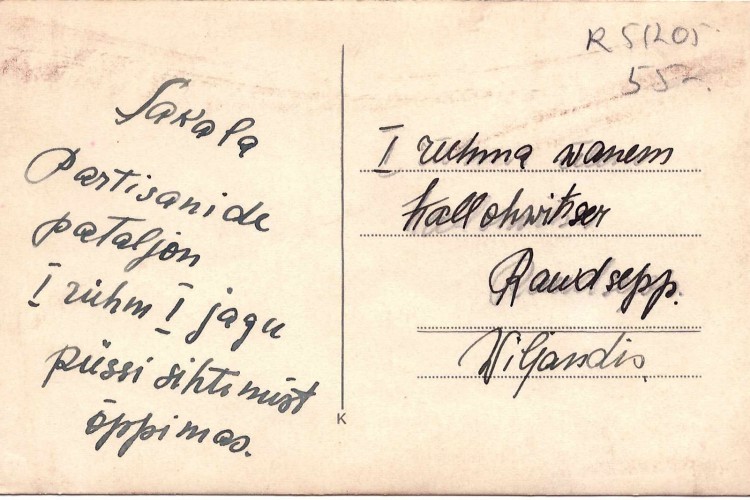 R 51205
55-.
Sakala
Partisanide
pataljon
I rühm I jagu
püssi sihtimist
õppimas.
I ruhma wanem
hallohwitser
Raudsepp.
Wiljandis
K